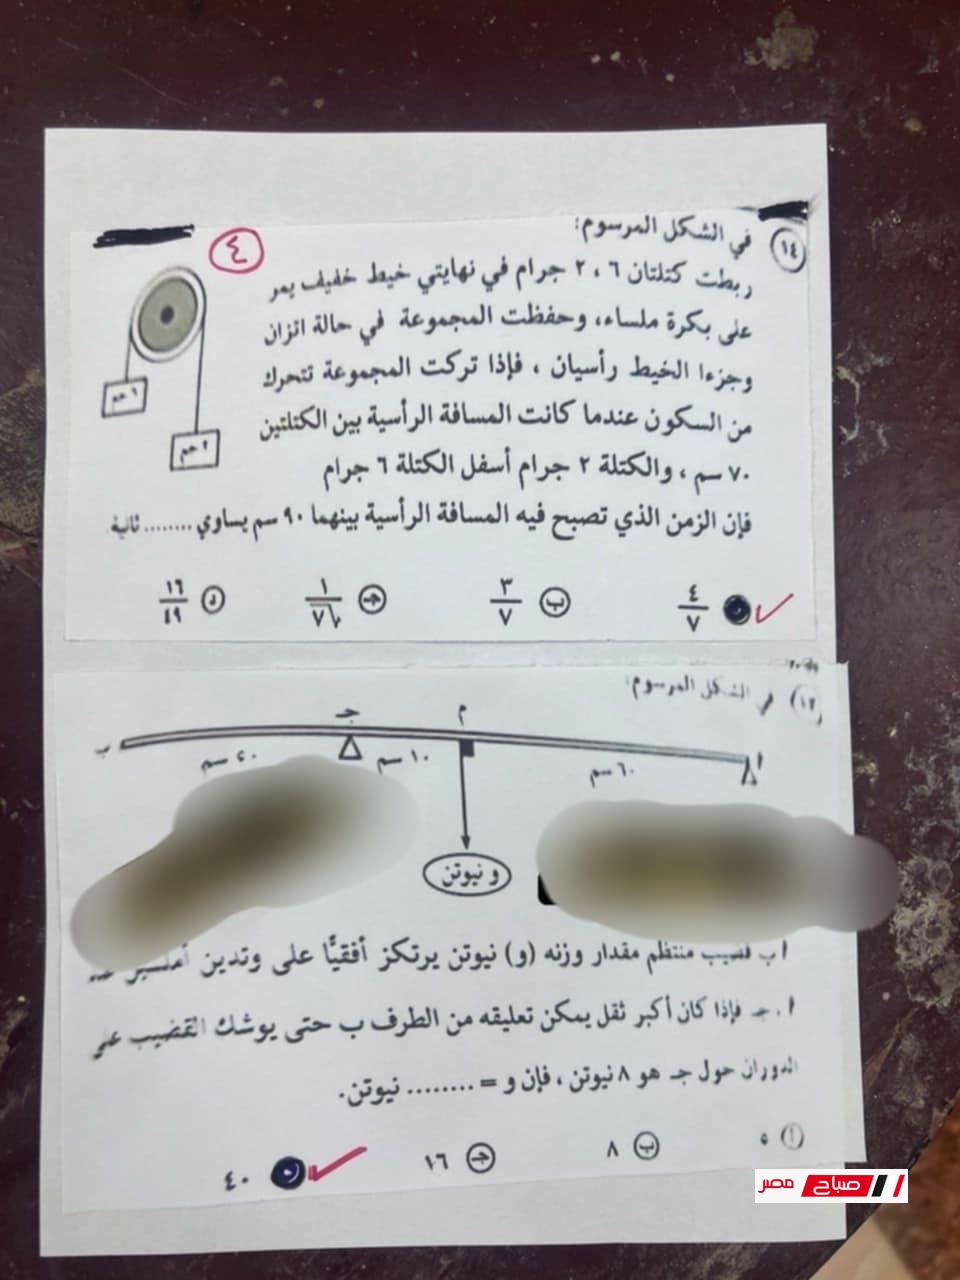 ١٤
في الشكل المرسوم:
٤
ربطت كتلتان ٦ ، ٢ جرام في نهايتي خيط خفيف يمر
على بكرة ملساء، وحفظت المجموعة في حالة اتزان
وجزءا الخيط رأسيان ، فإذا تركت المجموعة تتحرك
من السكون عندما كانت المسافة الرأسية بين الكتلتين
٧٠ سم ، والكتلة ٢ جرام أسفل الكتلة ٦ جرام
فإن الزمن الذي تصبح فيه المسافة الرأسية بينهما ٩٠ سم يساوي ........ ثانية.
٦ جم
٢ جم
٤/٧
ب ٣/٧
ج
د ١٦/٤٩
في الشكل المرسوم:
ب جـ م أ
٤٠ سم ١٠ سم ٦٠ سم
و نيوتن
أ ب قضيب منتظم مقدار وزنه (و) نيوتن يرتكز أفقيًّا على وتدين
أ ، جـ فإذا كان أكبر ثقل يمكن تعليقه من الطرف ب حتى يوشك القضيب على
الدوران حول جـ هو ٨ نيوتن ، فإن و = ........ نيوتن.
أ ٥
ب ٨
ج ١٦
د ٤٠
صباح مصر